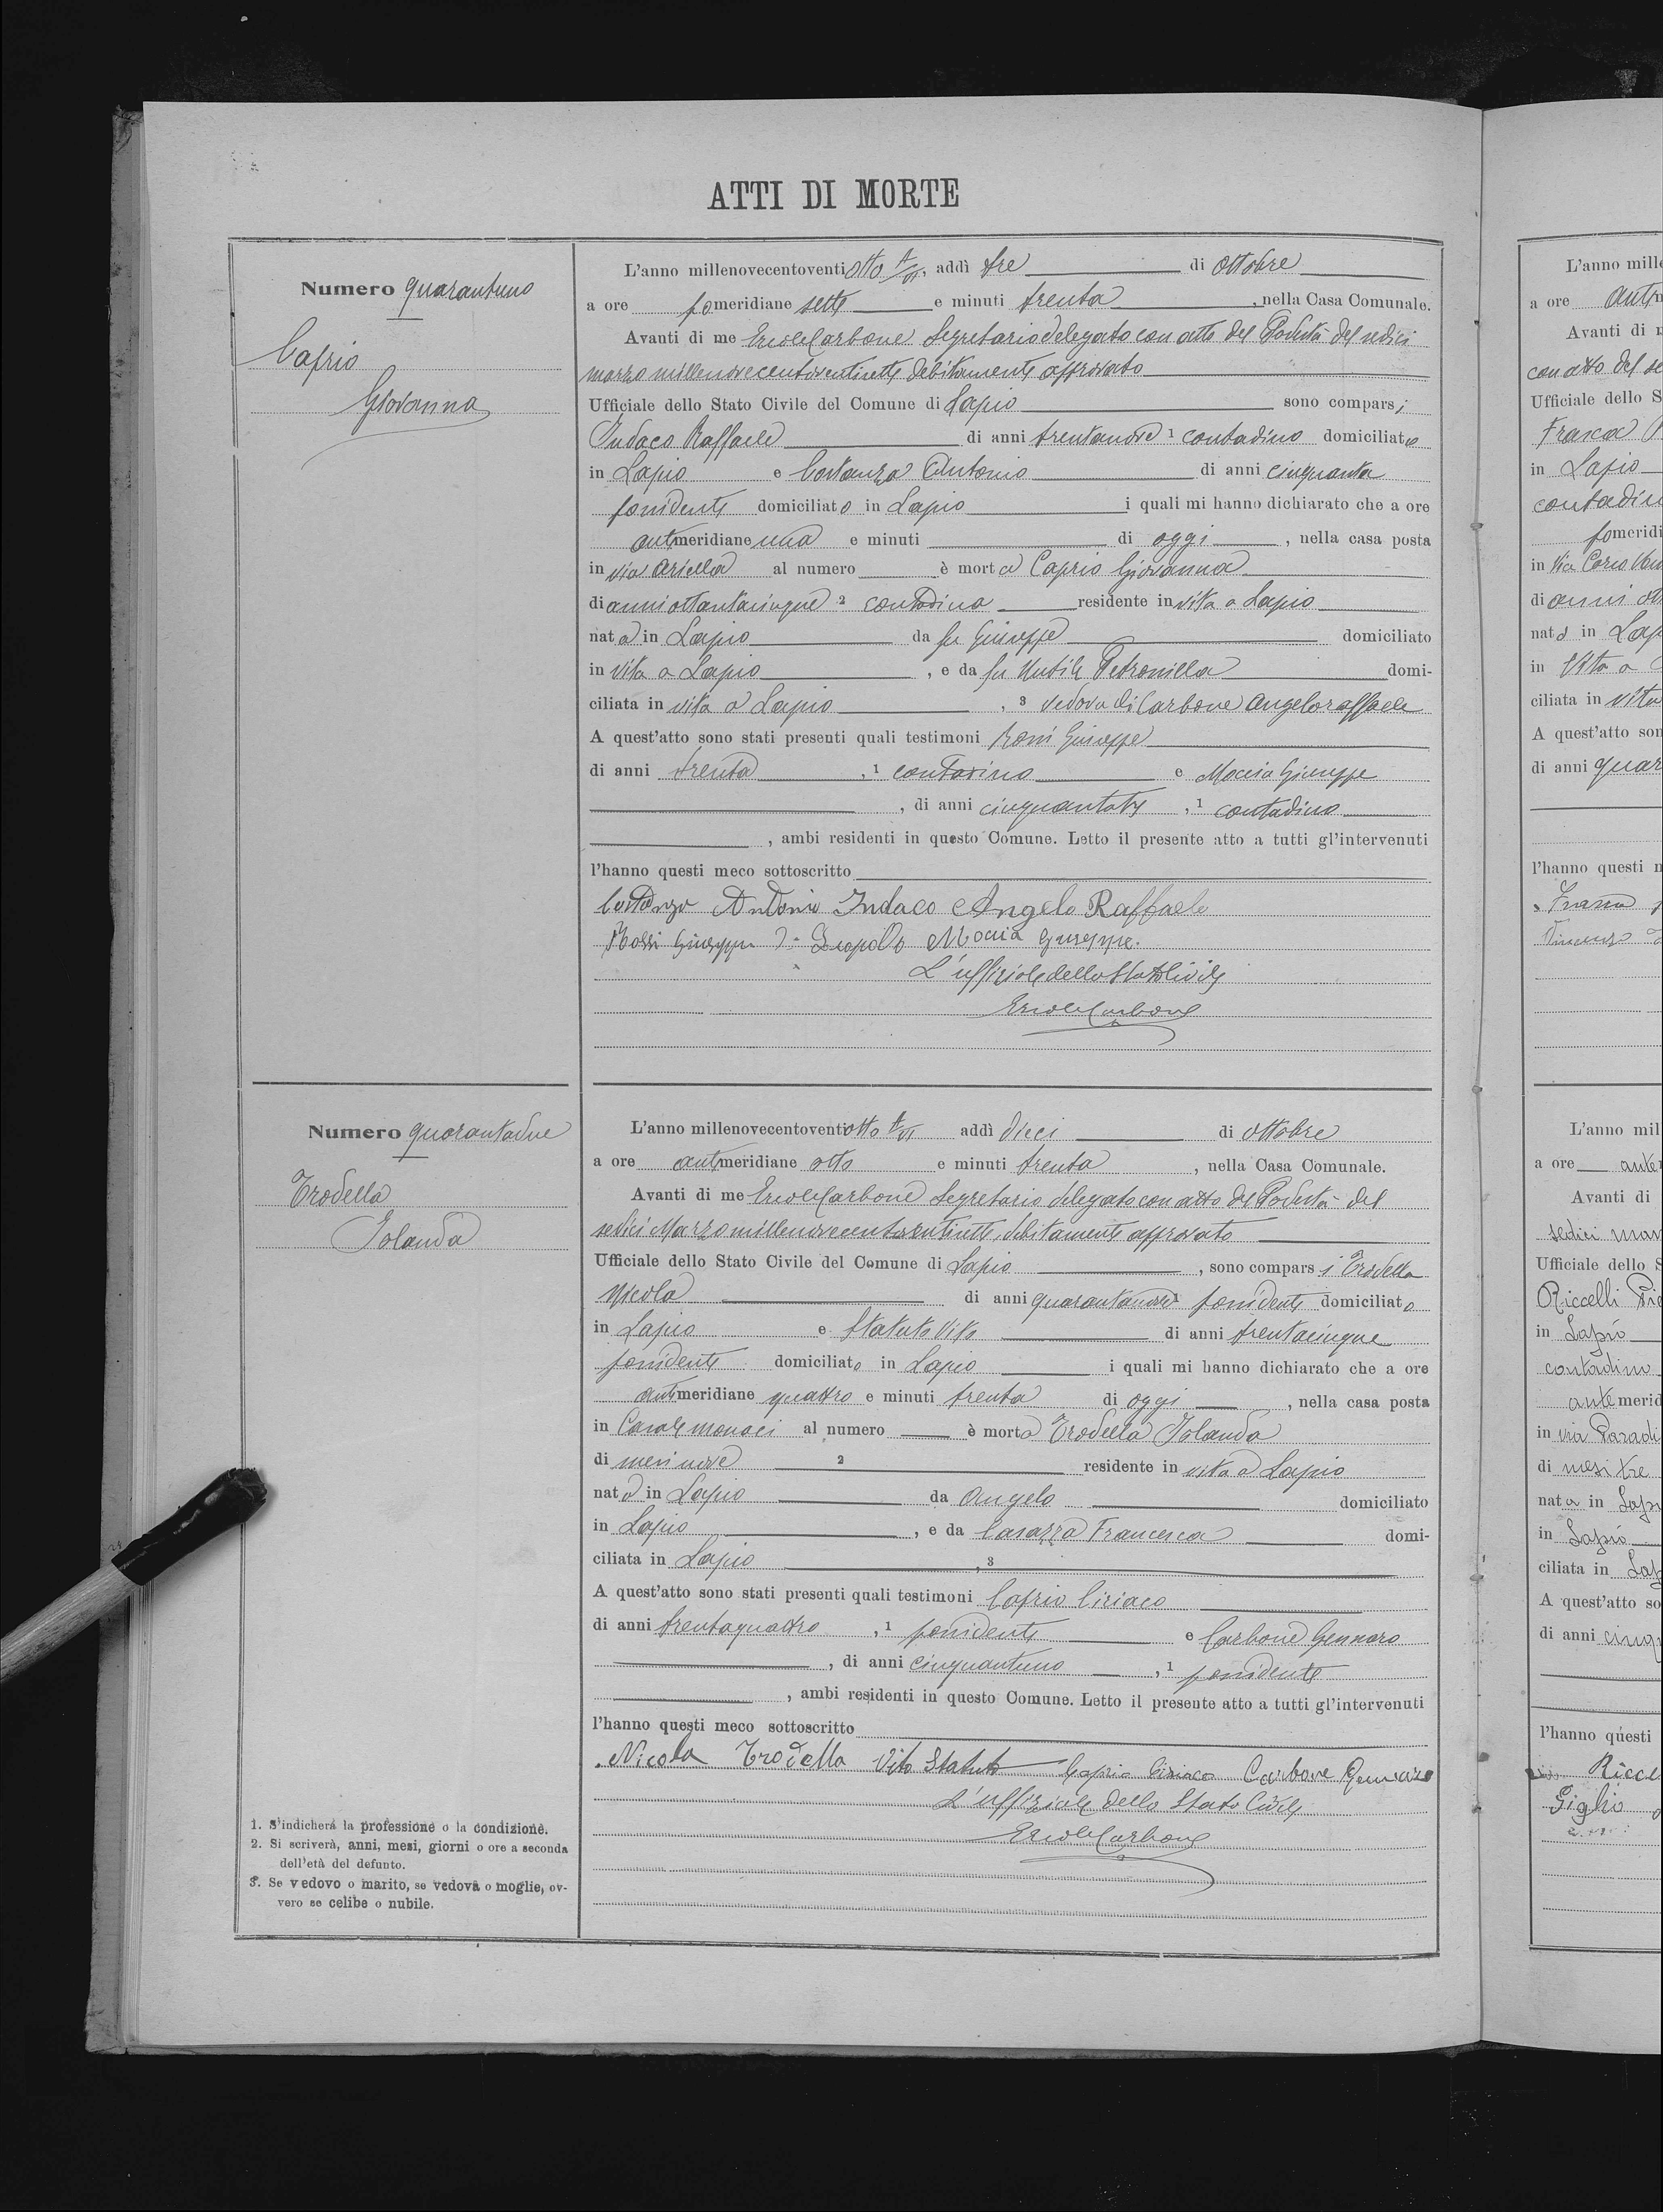 ATTI DI MORTE
Numero quarantuno
Caprio
Giovanna
L'anno millenovecentoventiotto A VI, addì tre di Ottobre
a ore pomeridiane sette e minuti trenta, nella Casa Comunale.
Avanti di me Ercole Carbone Segretario delegato con atto del Podestà del sedici
marzo millenovecentoventisette debitamente approvato
Ufficiale dello Stato Civile del Comune di Lapio sono comparsi
Indaco Raffaele di anni trentanove 1 contadino domiciliato
in Lapio e Costanza Antonio di anni cinquanta
possidente domiciliato in Lapio i quali mi hanno dichiarato che a ore
antimeridiane una e minuti di oggi, nella casa posta
in via Ariella al numero è morta Caprio Giovanna
di anni ottantacinque 2 contadina residente in vita a Lapio
nata in Lapio da fu Giuseppe domiciliato
in vita a Lapio, e da fu Nutile Petronilla domi-
ciliata in vita a Lapio, 3 vedova di Carbone Angeloraffaele
A quest'atto sono stati presenti quali testimoni Rossi Giuseppe
di anni trenta, 1 contadino e Moccia Giuseppe
, di anni cinquantatre, 1 contadino
, ambi residenti in questo Comune. Letto il presente atto a tutti gl'intervenuti
l'hanno questi meco sottoscritto
Costanzo Antonio Indaco Angelo Raffaele
Rossi Giuseppe di Leopoldo Moccia Giuseppe.
L'uffiziale dello Stato Civile
Ercole Carbone
Numero quarantadue
Trodella
Iolanda
L'anno millenovecentoventiotto A VI addì dieci di ottobre
a ore antimeridiane otto e minuti trenta, nella Casa Comunale.
Avanti di me Ercole Carbone Segretario delegato con atto del Podestà del
sedici Marzo millenovecentoventisette, debitamente approvato
Ufficiale dello Stato Civile del Comune di Lapio, sono comparsi Trodella
Nicola di anni quarantanove 1 possidente domiciliato
in Lapio e Statuto Vito di anni trentacinque
possidente domiciliato in Lapio i quali mi hanno dichiarato che a ore
antimeridiane quattro e minuti trenta di oggi, nella casa posta
in Casale monaci al numero è morta Trodella Iolanda
di mesi nove 2 residente in vita a Lapio
nata in Lapio da Angelo domiciliato
in Lapio, e da Carazza Francesca domi-
ciliata in Lapio, 3
A quest'atto sono stati presenti quali testimoni Caprio Ciriaco
di anni trentaquattro, 1 possidente e Carbone Gennaro
, di anni cinquantuno, 1 possidente
, ambi residenti in questo Comune. Letto il presente atto a tutti gl'intervenuti
l'hanno questi meco sottoscritto
Nicola Trodella Vito Statuto Caprio Ciriaco Carbone Gennaro
L'uffiziale dello Stato Civile
Ercole Carbone
1. S'indicherà la professione o la condizione.
2. Si scriverà, anni, mesi, giorni o ore a seconda
dell'età del defunto.
3. Se vedovo o marito, se vedova o moglie, ov-
vero se celibe o nubile.
L'anno mill
a ore antim
Avanti di
con atto del se
Ufficiale dello S
Frasca
in Lapio
contadin
pomeridi
in Via Corso
di anni ot
nata in Lap
in Vita a
ciliata in vita
A quest'atto son
di anni quar
l'hanno questi
L'anno mil
a ore ante
Avanti di
sedici mar
Ufficiale dello S
Riccelli
in Lapio
contadino
antemerid
in via Paradi
di mesi tre
nata in Lapi
in Lapio
ciliata in Lap
A quest'atto so
di anni cinq
l'hanno questi
Ricce
Giglio